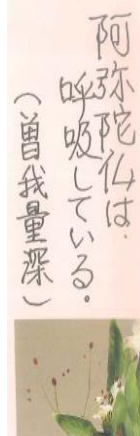 阿弥陀仏は、
呼吸している。
（曽我量深）